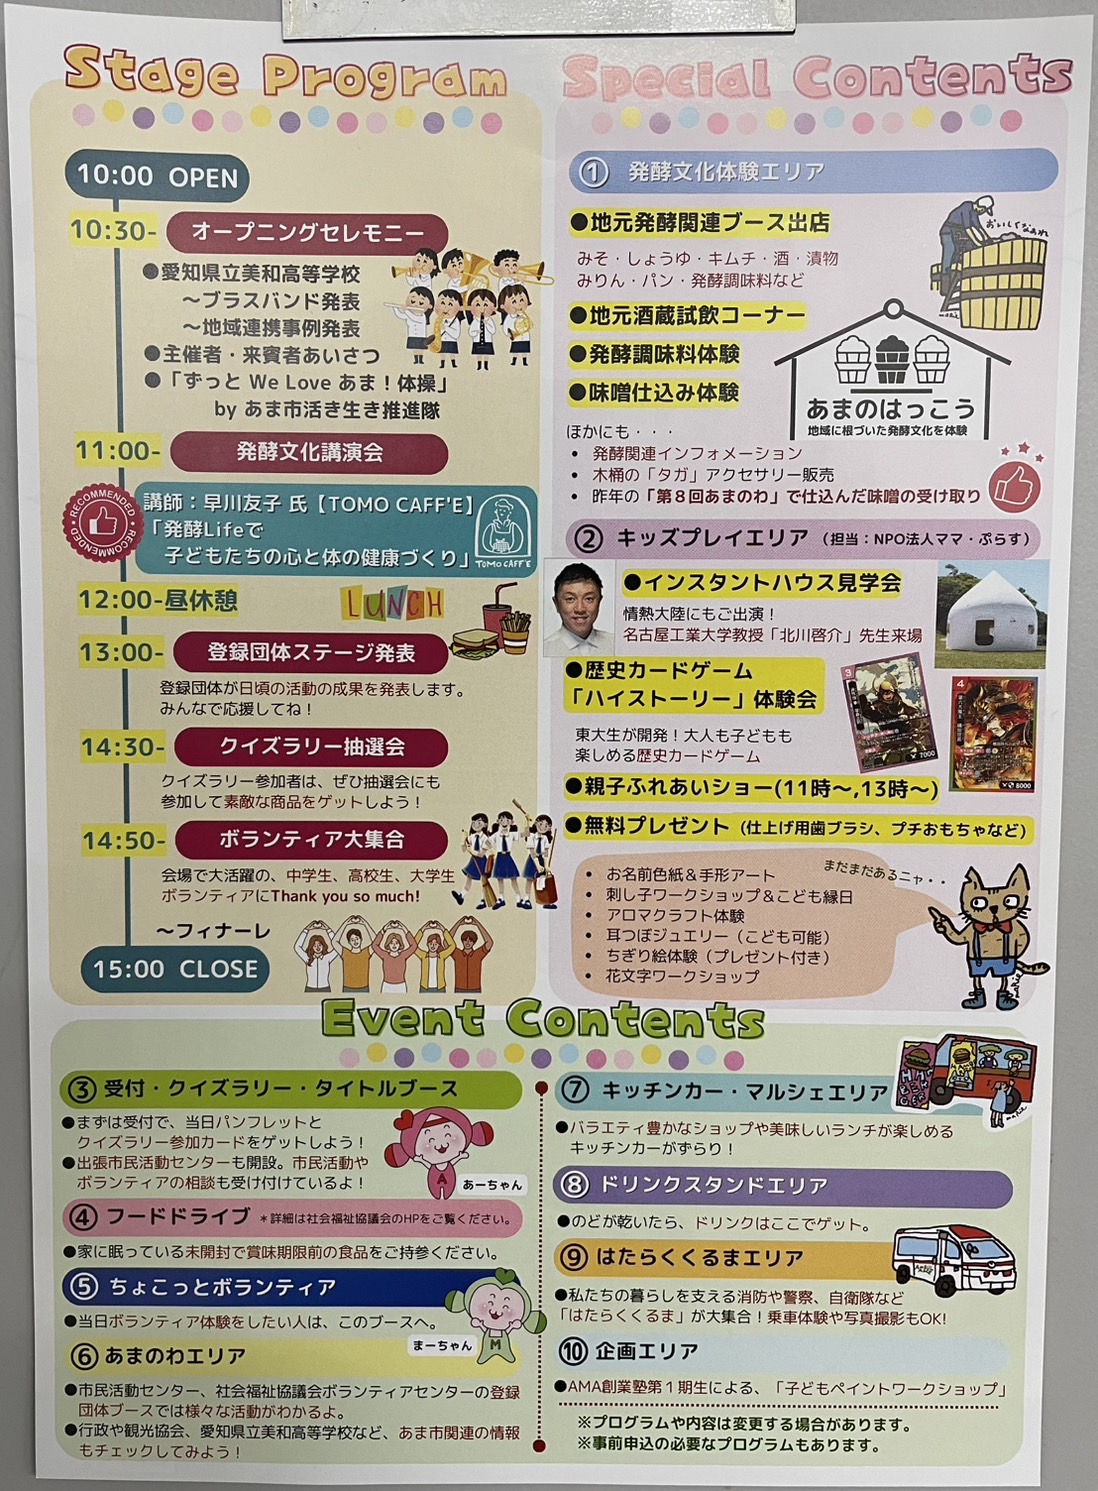 Stage Program
10:00 OPEN
10:30- オープニングセレモニー
●愛知県立美和高等学校
～ブラスバンド発表
～地域連携事例発表
●主催者・来賓者あいさつ
●「ずっと We Love あま！体操」
by あま市活き生き推進隊
11:00- 発酵文化講演会
RECOMMENDED
RECOMMENDED
講師：早川友子 氏【TOMO CAFF'E】
「発酵Lifeで
子どもたちの心と体の健康づくり」
TOMO CAFF'E
12:00-昼休憩
LUNCH
13:00- 登録団体ステージ発表
登録団体が日頃の活動の成果を発表します。
みんなで応援してね！
14:30- クイズラリー抽選会
クイズラリー参加者は、ぜひ抽選会にも
参加して素敵な商品をゲットしよう！
14:50- ボランティア大集合
会場で大活躍の、中学生、高校生、大学生
ボランティアにThank you so much!
～フィナーレ
15:00 CLOSE
Special Contents
① 発酵文化体験エリア
●地元発酵関連ブース出店
みそ・しょうゆ・キムチ・酒・漬物
みりん・パン・発酵調味料など
おいしくなあれ
●地元酒蔵試飲コーナー
●発酵調味料体験
●味噌仕込み体験
あまのはっこう
地域に根づいた発酵文化を体験
ほかにも・・・
• 発酵関連インフォメーション
• 木桶の「タガ」アクセサリー販売
• 昨年の「第８回あまのわ」で仕込んだ味噌の受け取り
② キッズプレイエリア（担当：NPO法人ママ・ぷらす）
●インスタントハウス見学会
情熱大陸にもご出演！
名古屋工業大学教授「北川啓介」先生来場
●歴史カードゲーム
「ハイストーリー」体験会
東大生が開発！大人も子どもも
楽しめる歴史カードゲーム
3
7000
4
8000
●親子ふれあいショー(11時～,13時～)
●無料プレゼント（仕上げ用歯ブラシ、プチおもちゃなど）
まだまだあるニャ・・
• お名前色紙＆手形アート
• 刺し子ワークショップ＆こども縁日
• アロマクラフト体験
• 耳つぼジュエリー（こども可能）
• ちぎり絵体験（プレゼント付き）
• 花文字ワークショップ
Event Contents
③ 受付・クイズラリー・タイトルブース
●まずは受付で、当日パンフレットと
クイズラリー参加カードをゲットしよう！
●出張市民活動センターも開設。市民活動や
ボランティアの相談も受け付けているよ！
A
あーちゃん
④ フードドライブ ＊詳細は社会福祉協議会のHPをご覧ください。
●家に眠っている未開封で賞味期限前の食品をご持参ください。
⑤ ちょこっとボランティア
●当日ボランティア体験をしたい人は、このブースへ。
M
まーちゃん
⑥ あまのわエリア
●市民活動センター、社会福祉協議会ボランティアセンターの登録
団体ブースでは様々な活動がわかるよ。
●行政や観光協会、愛知県立美和高等学校など、あま市関連の情報
もチェックしてみよう！
⑦ キッチンカー・マルシェエリア
●バラエティ豊かなショップや美味しいランチが楽しめる
キッチンカーがずらり！
⑧ ドリンクスタンドエリア
●のどが乾いたら、ドリンクはここでゲット。
⑨ はたらくくるまエリア
●私たちの暮らしを支える消防や警察、自衛隊など
「はたらくくるま」が大集合！乗車体験や写真撮影もOK!
⑩ 企画エリア
●AMA創業塾第１期生による、「子どもペイントワークショップ」
※プログラムや内容は変更する場合があります。
※事前申込の必要なプログラムもあります。